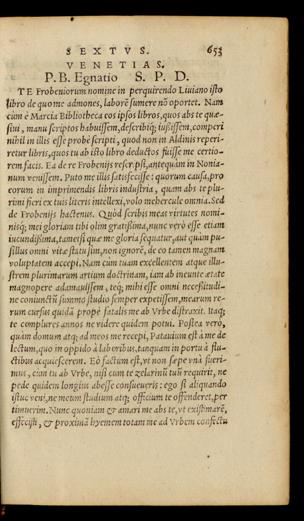 SEXTVS. 653
VENETIAS.
P. B. Egnatio S. P. D.
TE Frobeniorum nomine in perquirendo Liuiano isto
libro de quo me admones, laborē sumere nō oportet. Nam
cum è Marcia Bibliotheca eos ipsos libros, quos abs te quæ-
siui, manu scriptos habuissem, describiq; iussissem, comperi
nihil in illis esse probè scripti, quod non in Aldinis reperi-
retur libris, quos tu ab isto libro deductos fuisse me certio-
rem facis. Ea de re Frobenijs rescripsi, antequàm in Nonia-
num venissem. Puto me illis satisfecisse: quorum causa, pro
eorum in imprimendis libris industria, quam abs te plu-
rimi fieri ex tuis literis intellexi, volo mehercule omnia. Sed
de Frobenijs hactenus. Quòd scribis meas virtutes nomi-
nisq; mei gloriam tibi olim gratissima, nunc verò esse etiam
iucundissima, tametsi quæ me gloria sequatur, aut quàm pu-
sillus omni vitæ statu sim, non ignorē, de eo tamen magnam
voluptatem accepi. Nam cùm tuam excellentem atque illu-
strem plurimarum artium doctrinam, iam ab ineunte ætate
magnopere adamauissem, teq; mihi esse omni necessitudi-
ne coniunctū summo studio semper expetissem, mearum re-
rum cursus quidā propè fatalis me ab Vrbe distraxit. Itaq;
te complures annos ne videre quidem potui. Postea verò,
quàm domum atq; ad meos me recepi, Patauium est à me de
lectum, quo in oppido à laboribus, tanquam in portu à flu-
ctibus acquiescerem. Eò factum est, vt non sæpe vnà fueri-
mus, cùm tu ab Vrbe, nisi cum te zelarinū tuū requirit, ne
pede quidem longius abesse consueueris: ego si aliquando
istuc veni, ne meum studium atq; officium te offenderet, per
timuerim. Nunc quoniam & amari me abs te, vt existimarē,
effecisti, & proximā hyemem totam me ad Vrbem confectu